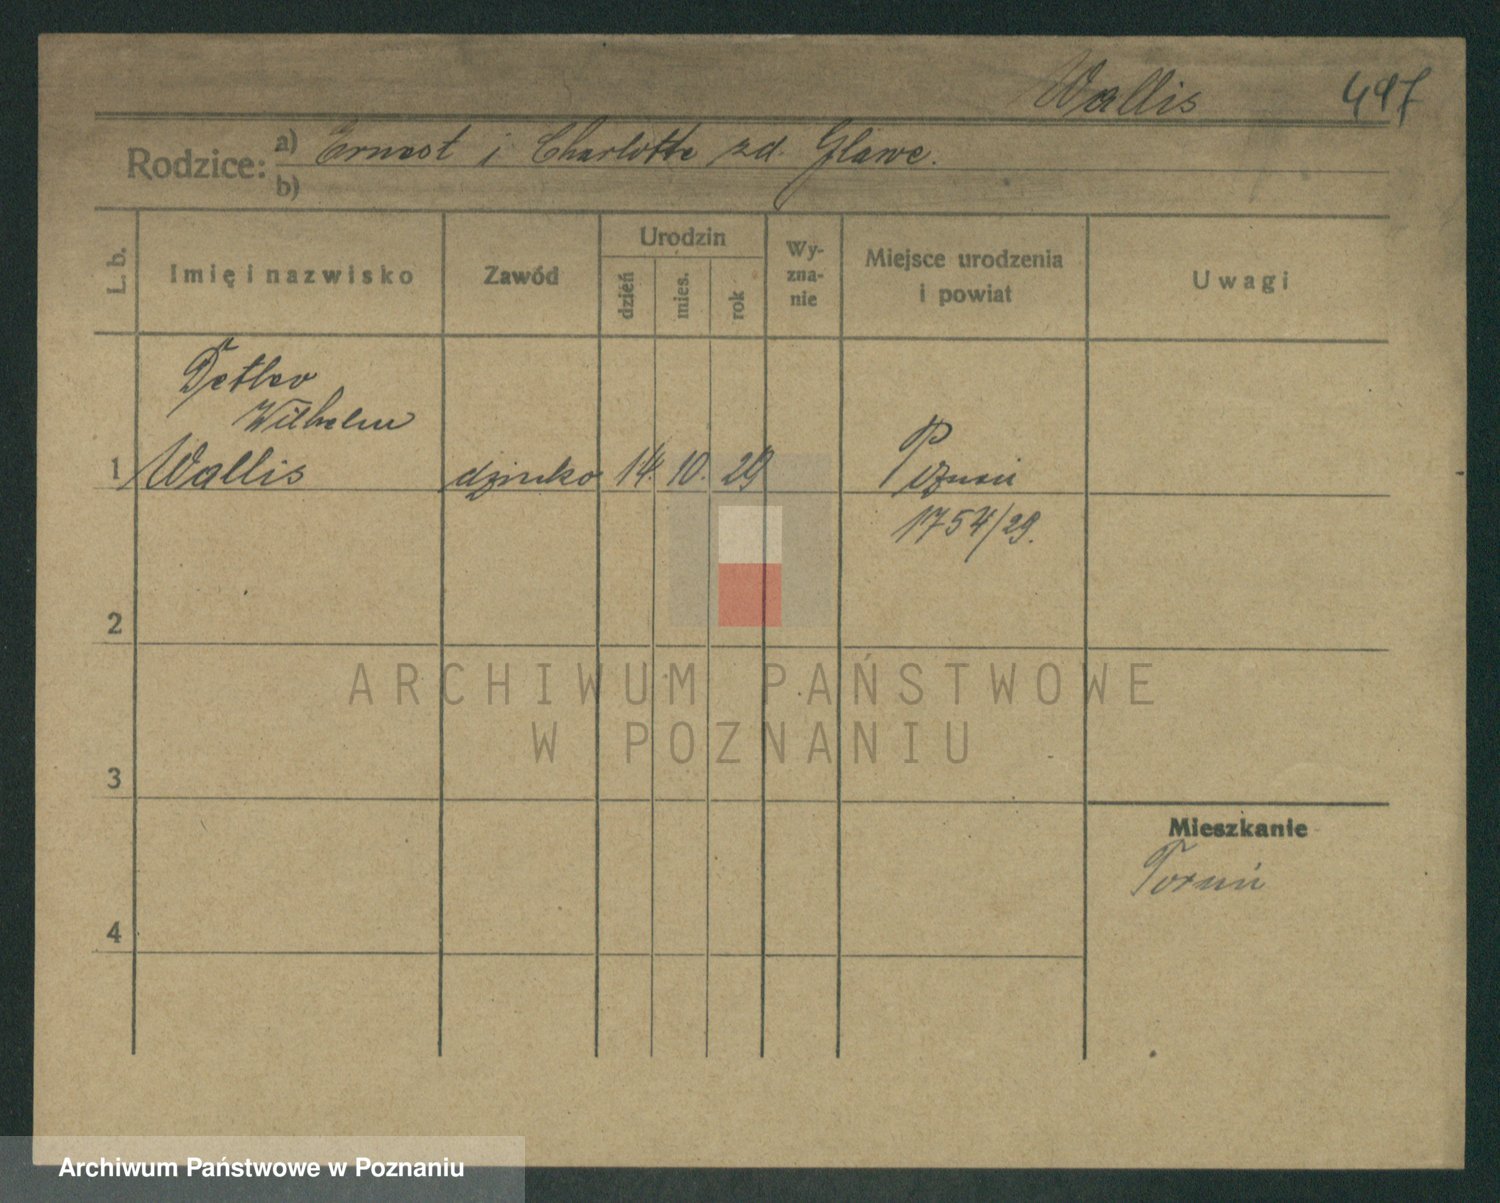 Wallis 497
Rodzice: a) Ernest i Charlotte zd. Glawe.
b)
L. b. Imię i nazwisko Zawód Urodzin dzień mies. rok Wyznanie Miejsce urodzenia i powiat Uwagi
Detlev
Wilhelm
1 Wallis dziecko 14. 10. 29 Poznań
1754/29.
2
3
Mieszkanie
Toruń
4
ARCHIWUM PAŃSTWOWE
W POZNANIU
Archiwum Państwowe w Poznaniu